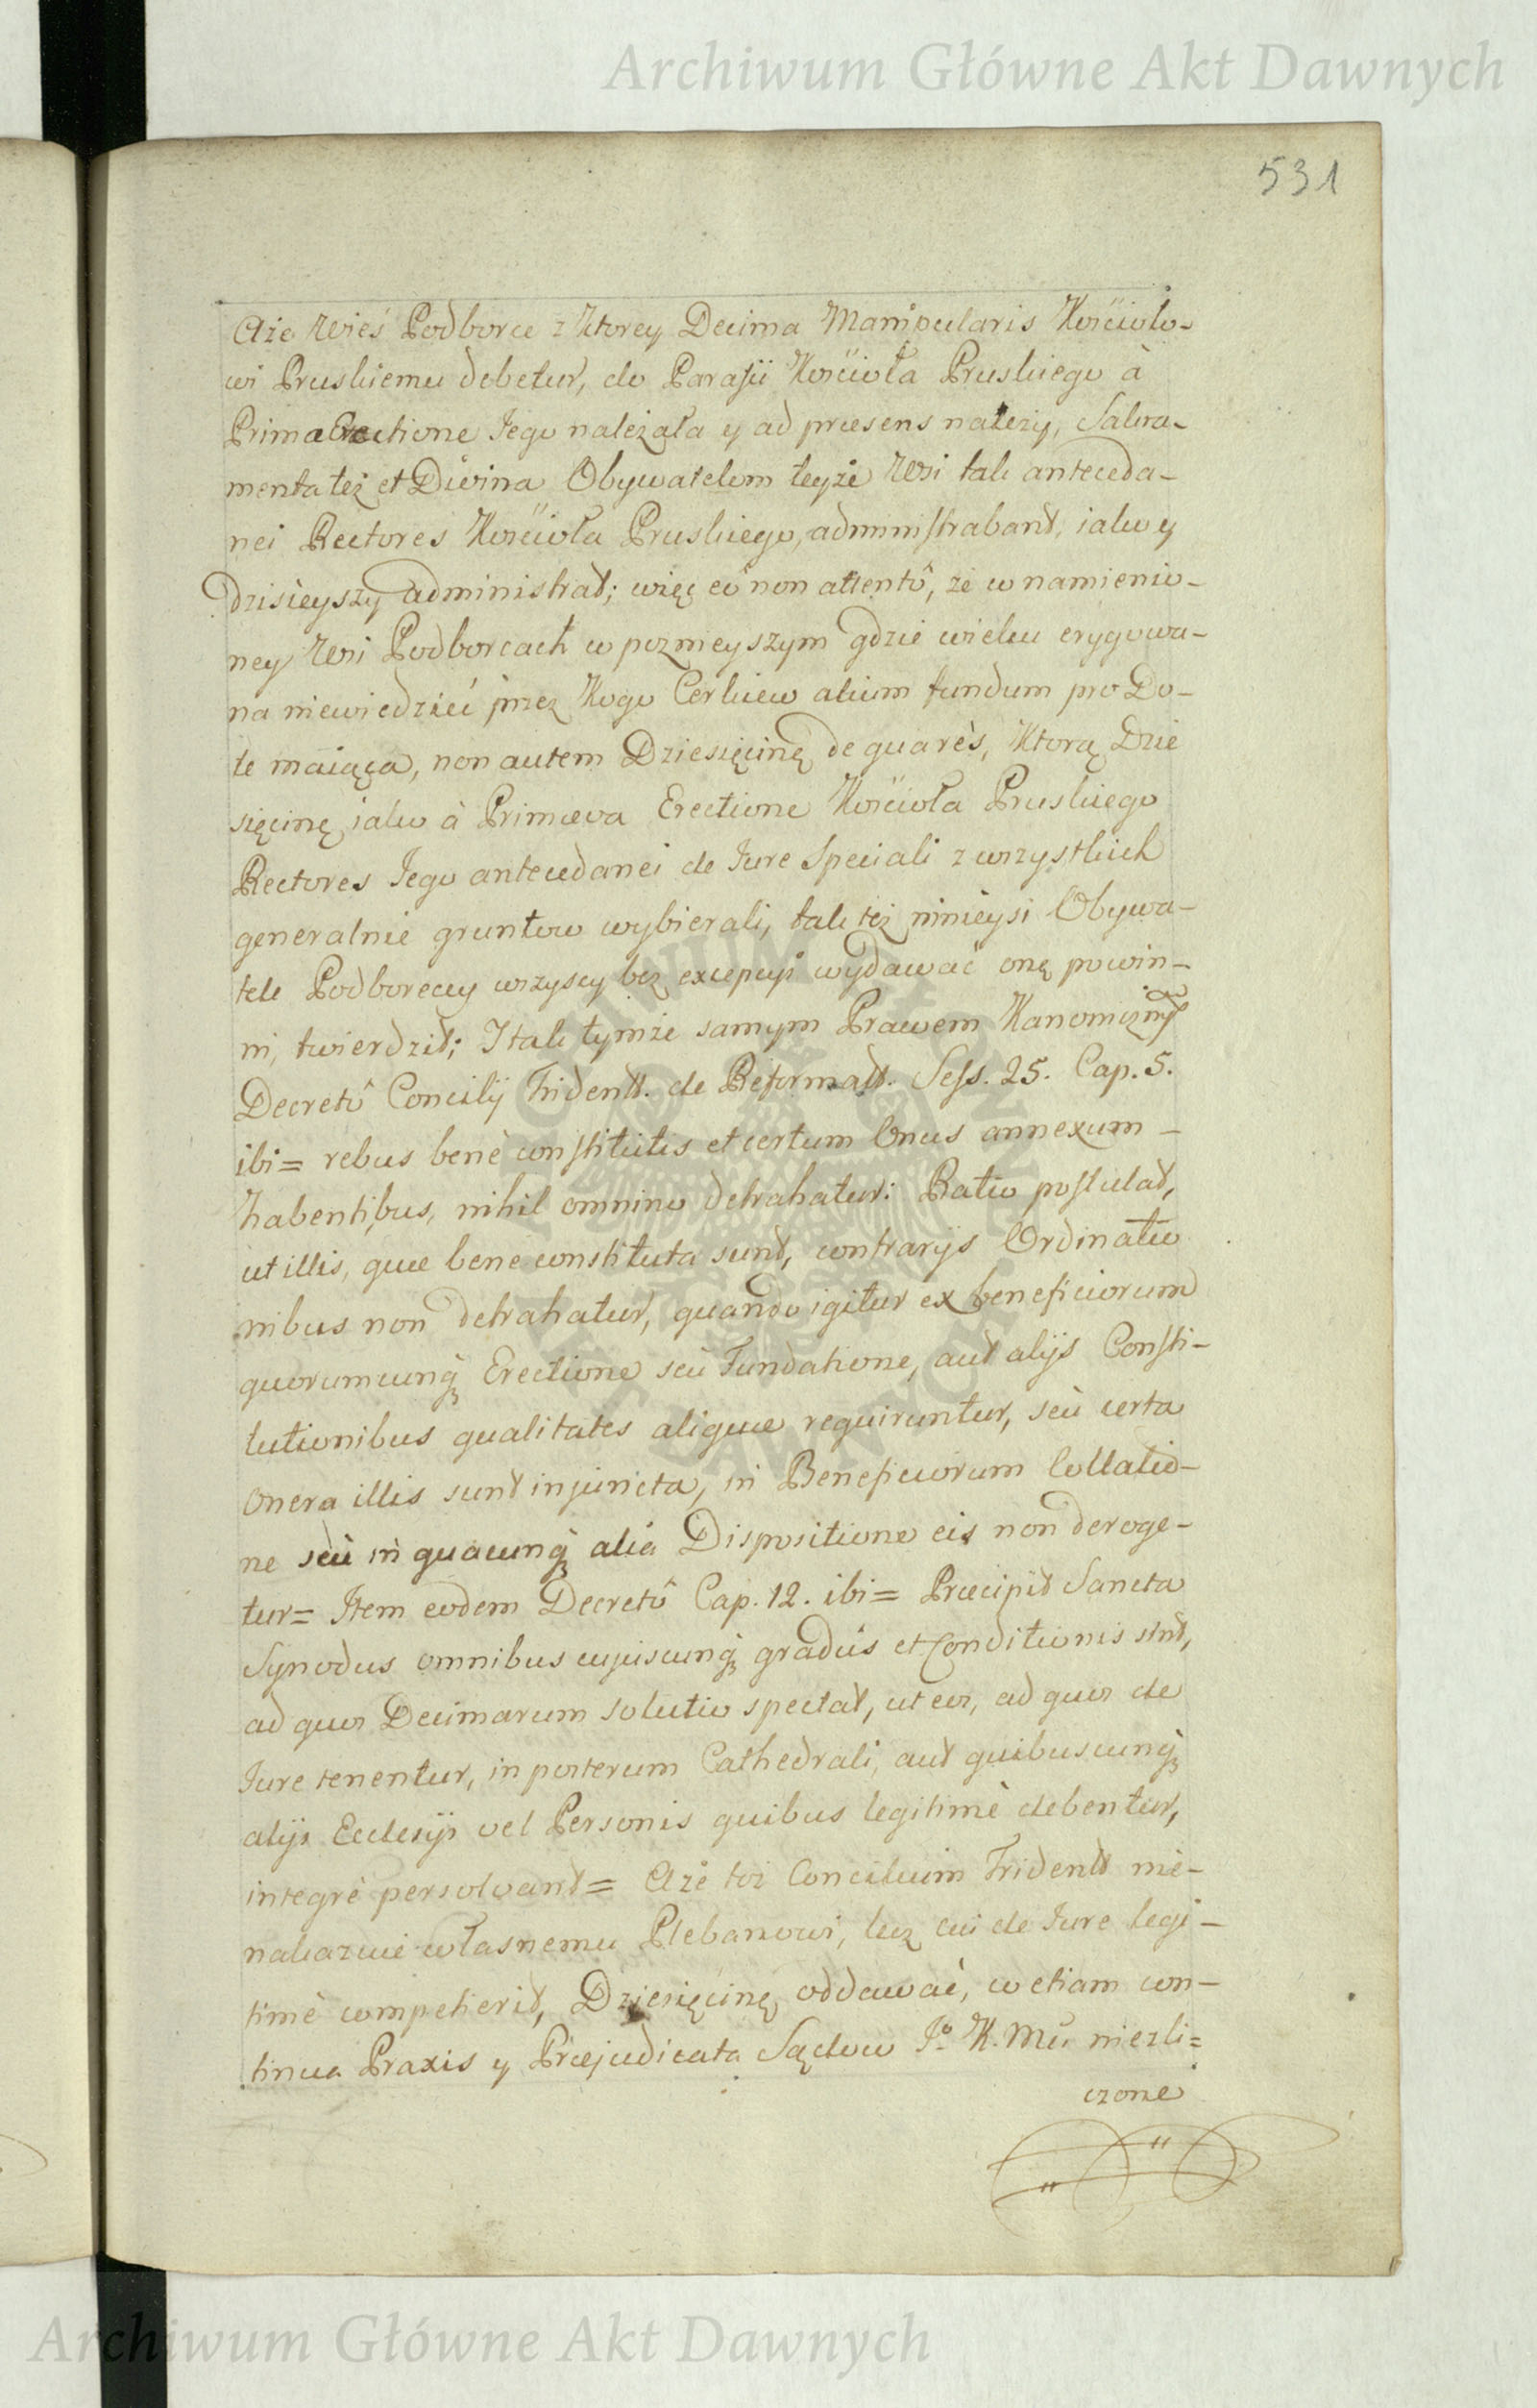 Archiwum Główne Akt Dawnych
531
Aże Wieś Podborce z Ktorey Decima Manipularis Kościoło-
wi Pruskiemu debetur, do Parafii Kościoła Pruskiego à
Prima Erectione Jego należała y ad præsens należy, Sakra-
menta też et Divina Obywatelom teyże Wsi tak anteceda-
nei Rectores Kościoła Pruskiego, administrabant, iako y
dzisieyszy administrat; więc eô non attentô, że w namienio-
ney Wsi Podborcach w poznieyszym gdzie wieku erygowa-
na niewiedzieć przez Kogo Cerkiew alium fundum pro Do-
te maiąca, non autem Dziesięcinę de quarès, Ktorą Dzie
sięcinę iako à Primæva Erectione Kościoła Pruskiego
Rectores Jego antecedanei de Jure Speciali z wszystkich
generalnie gruntow wybierali, tak też ninieysi Obywa-
tele Podboreccy wszyscy bez excepcyi wydawać onę powin-
ni, twierdził; I tak tymże samym Prawem Kanonicznym
Decretô Concilij Trident. de Reformat. Sess. 25. Cap. 5.
ibi = rebus benè constitutis et certum Onus annexum -
habentibus, nihil omnino detrahatur: Ratio postulat,
ut illis, quæ bene constituta sunt, contrarijs Ordinatio
nibus non detrahatur, quando igitur ex beneficiorum
quorumcunq́ Erectione seù Fundatione, aut alijs Consti-
tutionibus qualitates aliquæ requiruntur, seù certa
onera illis sunt injuncta, in Beneficiorum Collatio-
ne seù in quacunq́ aliâ Dispositione eis non deroge-
tur = Item eodem Decretô Cap. 12. ibi = Præcipit Sancta
Synodus omnibus cujuscunq́ gradûs et Conditionis sint,
ad quos Decimarum solutio spectat, ut eos, ad quos de
Jure tenentur, in posterum Cathedrali, aut quibuscunq́
alijs Ecclesijs vel Personis quibus legitimè debentur,
integrè persolvant = Aże toż Concilium Trident nie-
nakazuie własnemu Plebanowi, lecz cui de Jure legi-
timè competierit, Dziesięcinę oddawać, co etiam con-
tinua Praxis y Præjudicata Sądow Jº. K. Mci niezli=
czone
Archiwum Główne Akt Dawnych